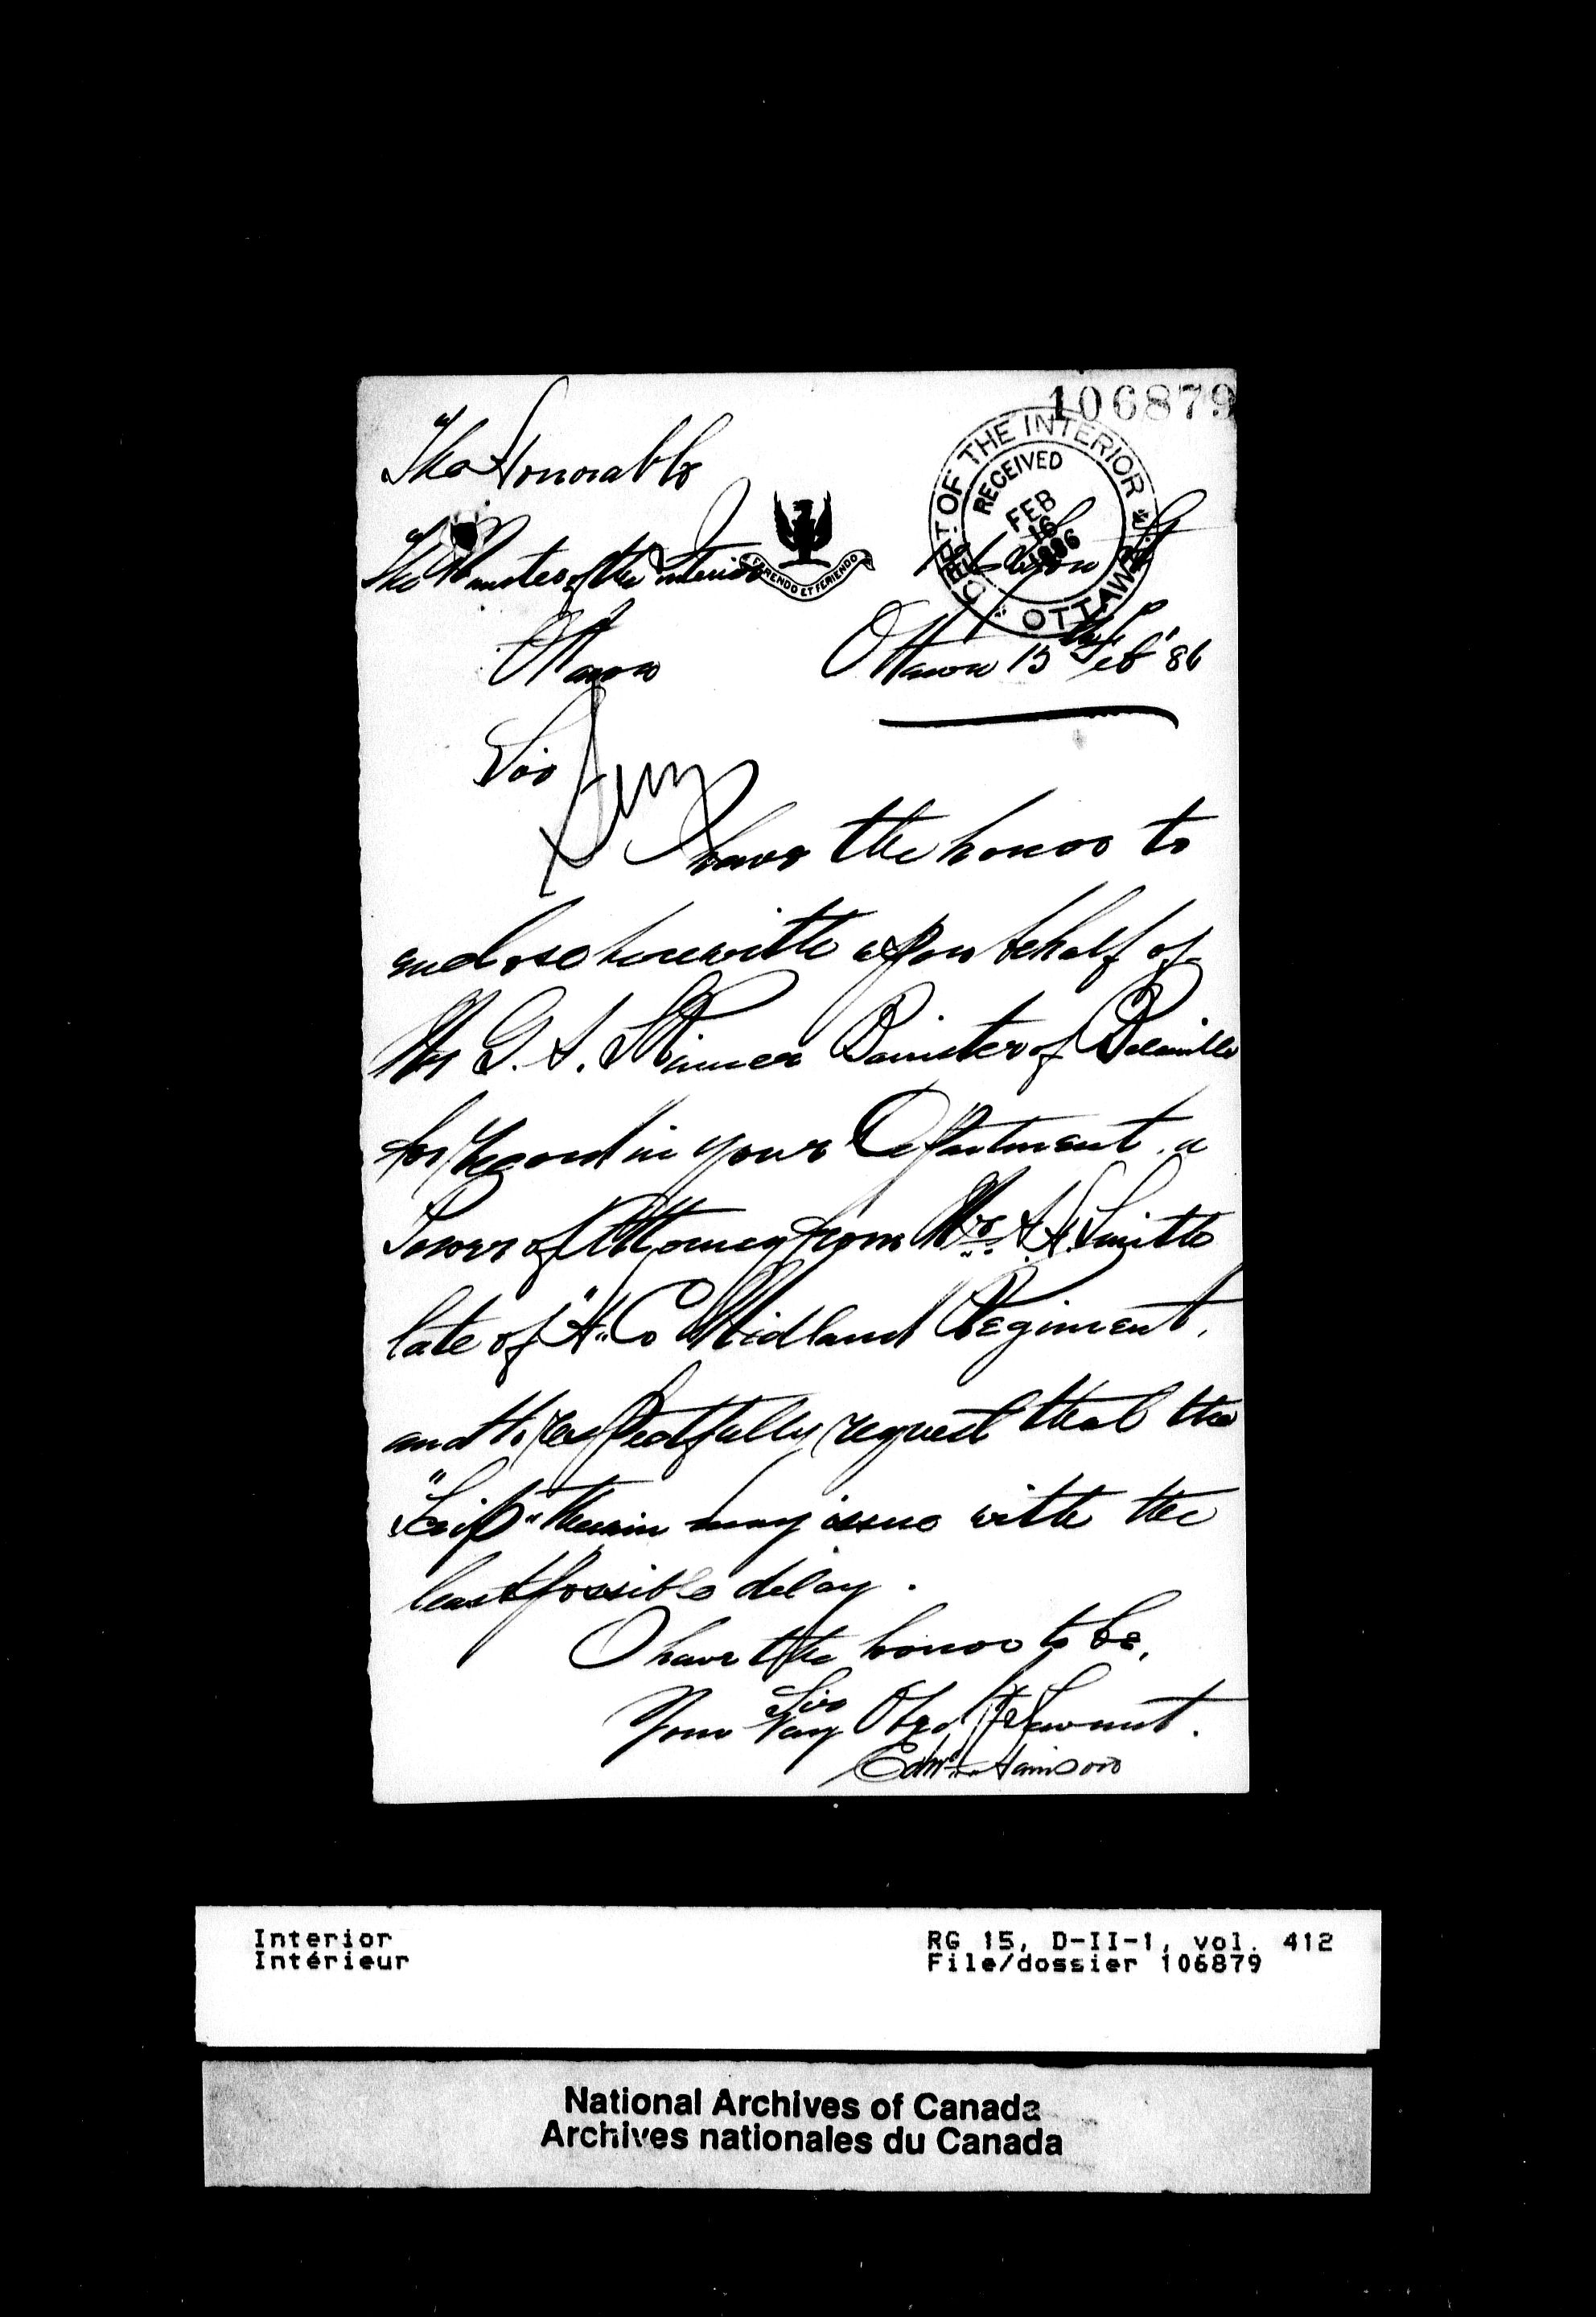 106879
DEPT OF THE INTERIOR
OTTAWA
RECEIVED
FEB
16
1886
The Honorable
The Minister of the Interior
FERENDO ET FERIENDO
Ottawa
Ottawa 15th Feb' 86
Sir
I have the honor to
enclose herewith upon behalf of
Mr G. S. Skinner Barrister of
for record in your Department a
Power of Attorney from Mr. Smith
late of "A" Co Midland Regiment,
and to respectfully request that the
"Scrip" therein may issue with the
least possible delay.
I have the honor to be,
Sir
Your Very Obed't Servant.
Edw. Harrison
Interior
Intérieur
RG 15, D-II-1, vol. 412
File/dossier 106879
National Archives of Canada
Archives nationales du Canada